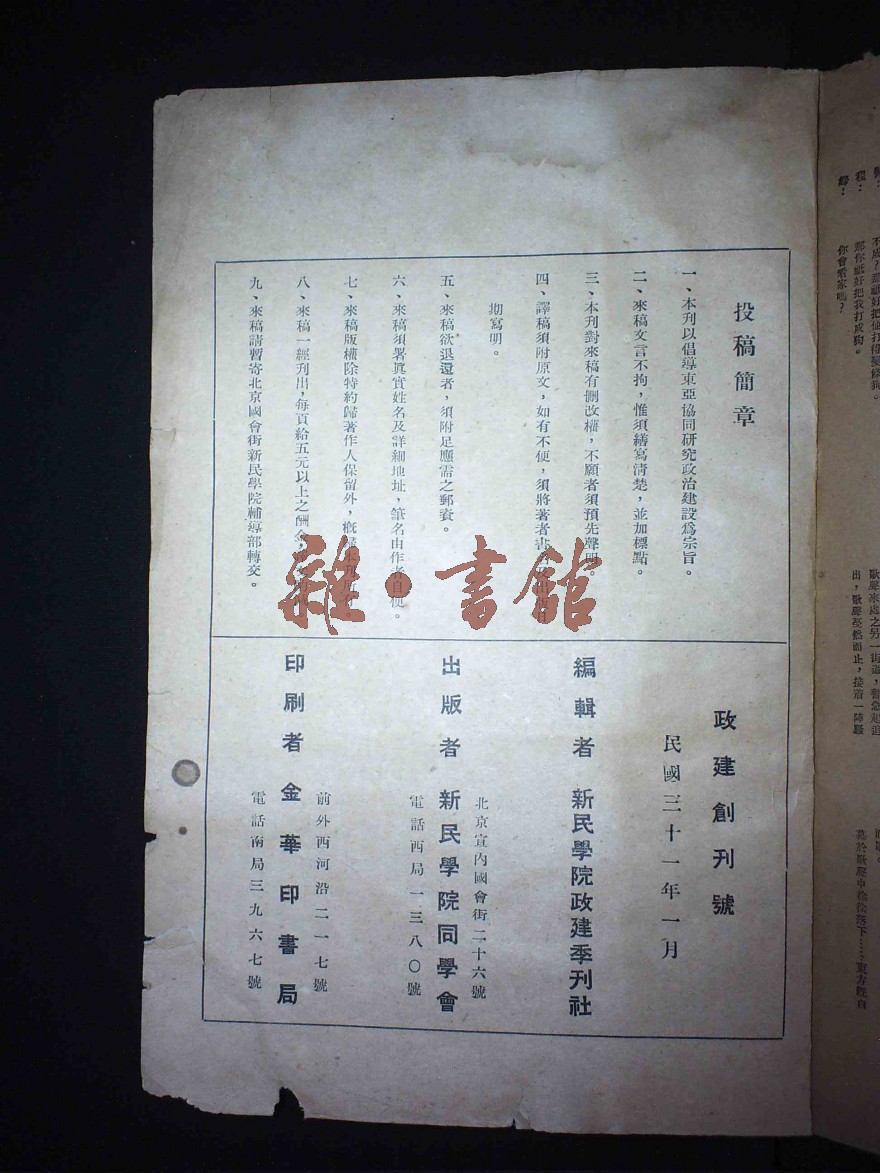 投稿簡章
一、本刊以倡導東亞協同研究政治建設爲宗旨。
二、來稿文言不拘，惟須繕寫清楚，並加標點。
三、本刊對來稿有刪改權，不願者須預先聲明。
四、譯稿須附原文，如有不便，須將著者書
期寫明。
五、來稿欲退還者，須附足應需之郵資。
六、來稿須署眞實姓名及詳細地址，筆名由作者自便。
七、來稿版權除特約歸著作人保留外，概歸本刊所有
八、來稿一經刊出，每頁給五元以上之酬金
九、來稿請暫寄北京國會街新民學院輔導部轉交。
政建創刊號
民國三十一年一月
編輯者 新民學院政建季刊社
北京宣內國會街二十六號
出版者 新民學院同學會
電話西局一三八〇號
前外西河沿二一七號
印刷者 金華印書局
電話南局三九六七號
雜·書館
不成？那祇好把他打得變條狗。
那你祇好把我打成狗。
你會看家嗎？
歌聲來處之另一街道，警急起迫
出，歌聲戞然而止，接着一陣騷